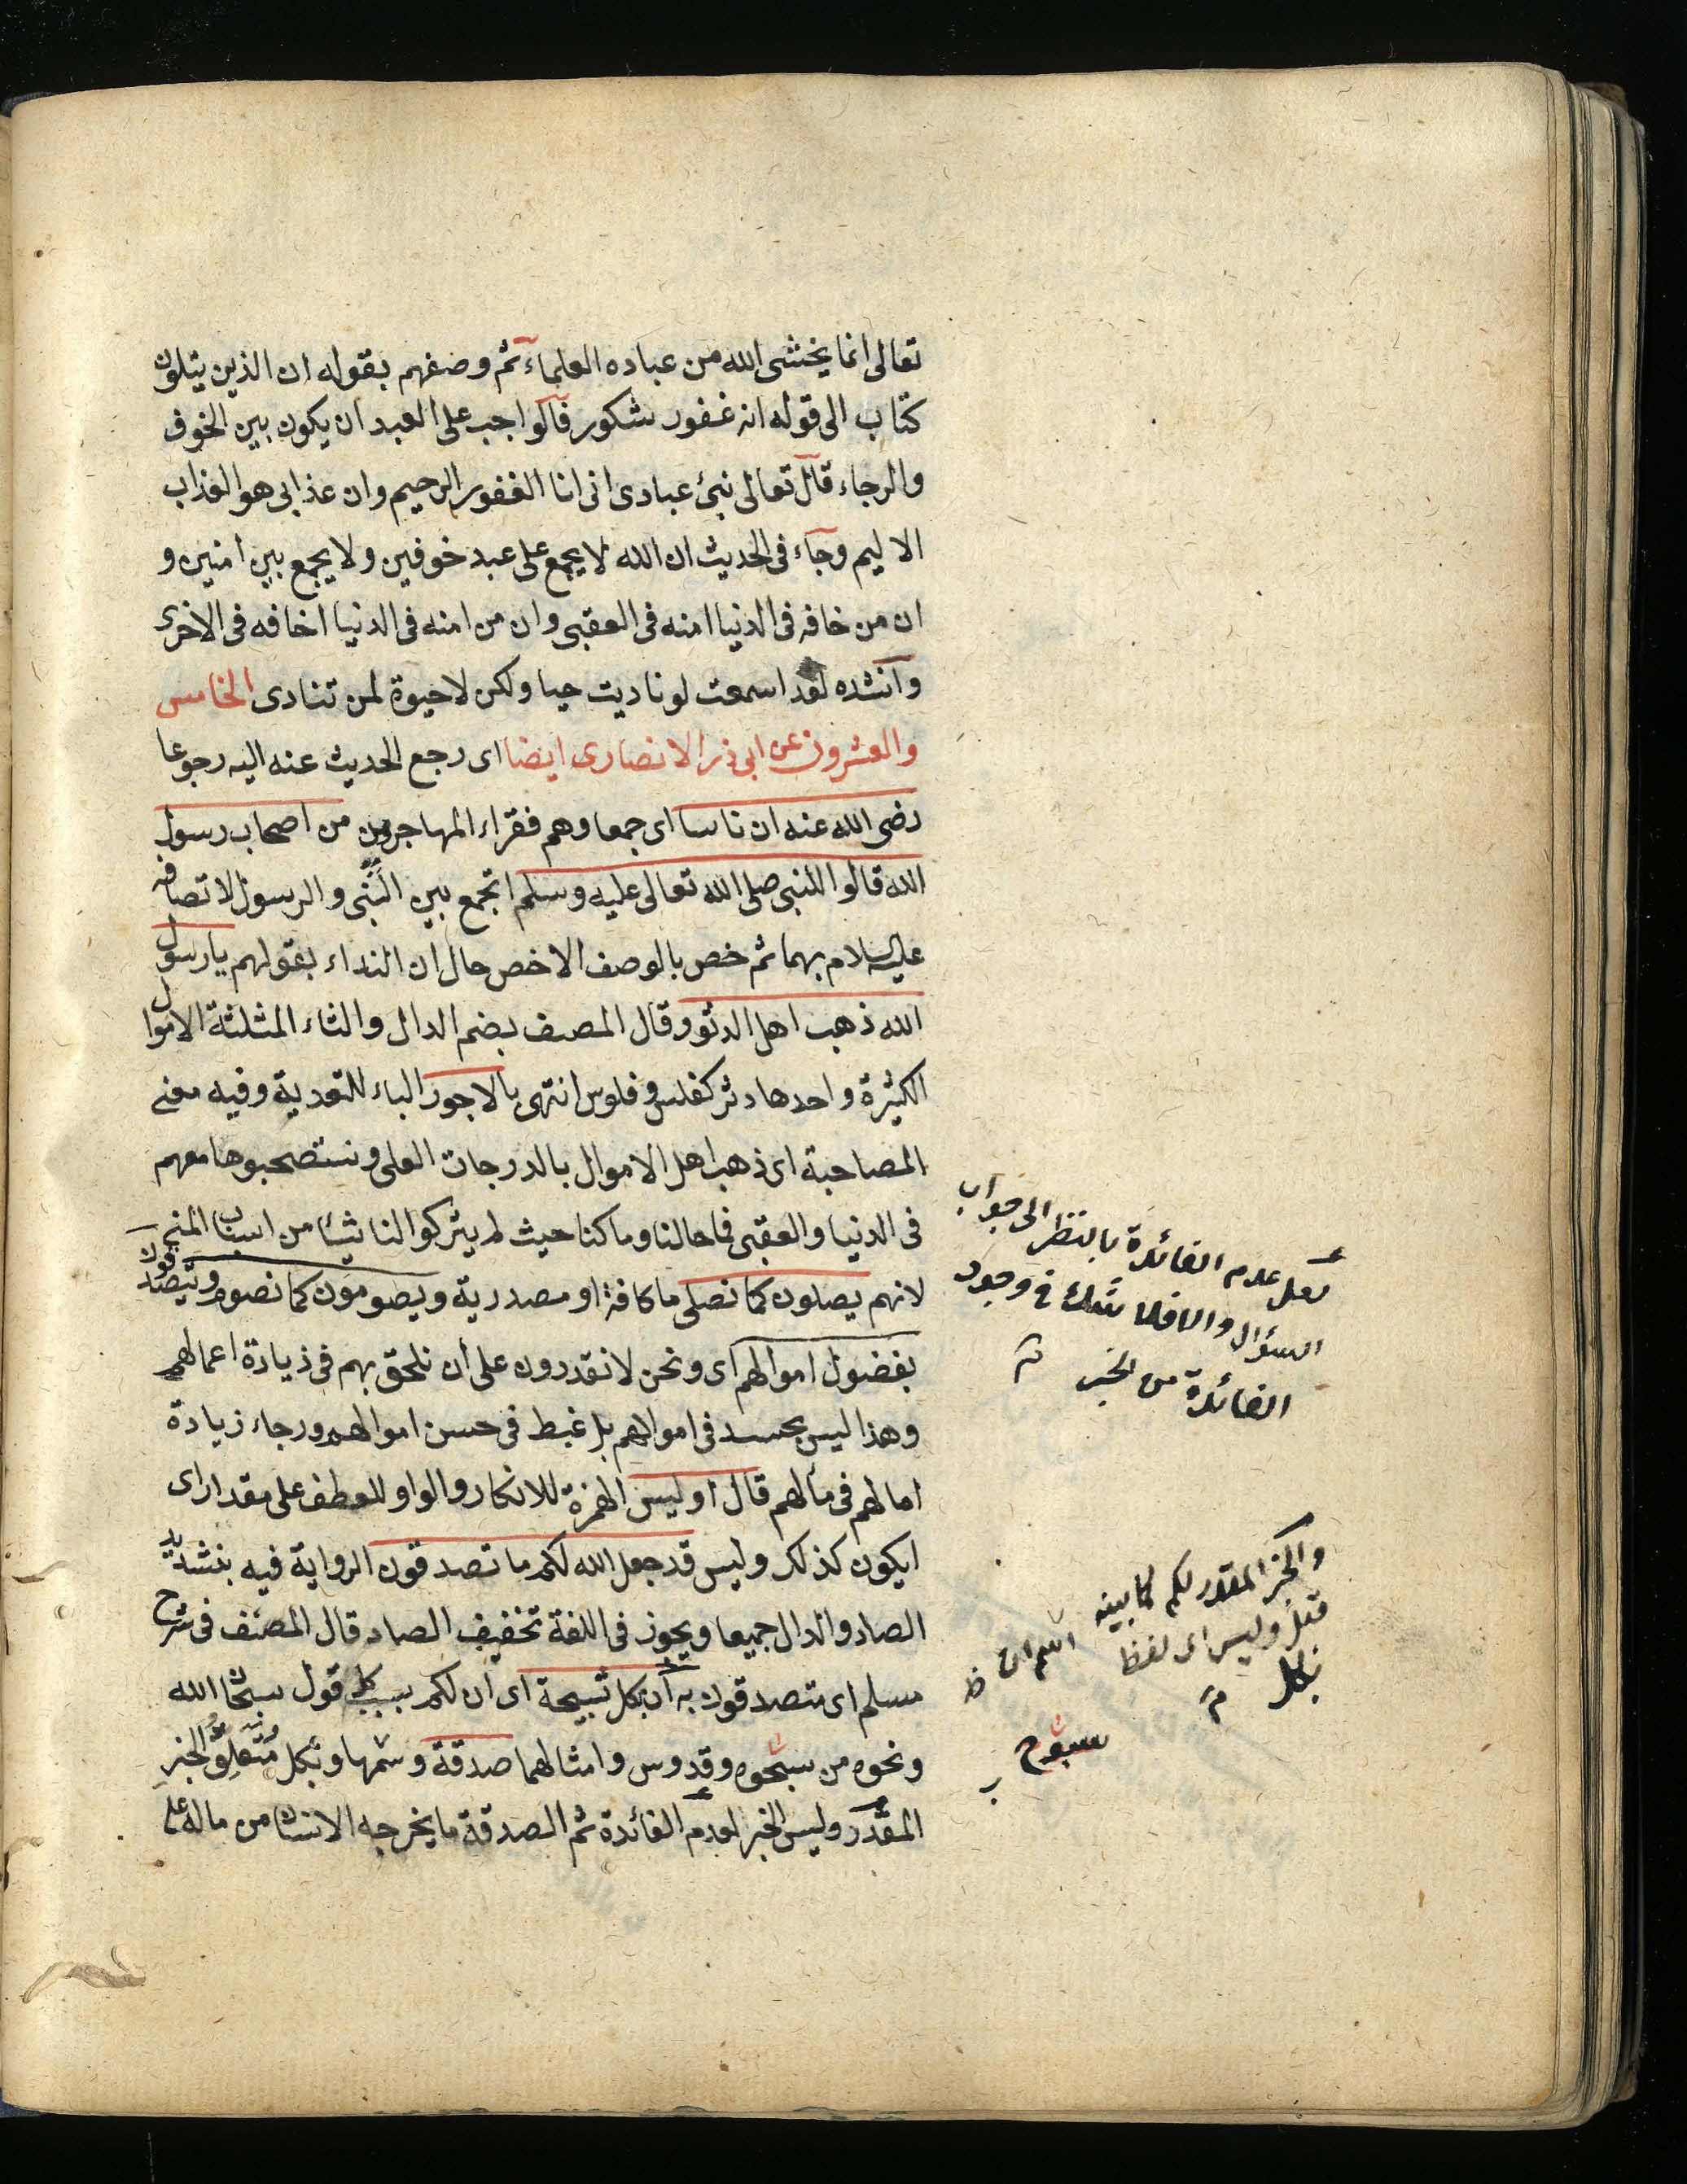 تعالى انما يخشى الله من عباده العلماء ثم وصفهم بقوله ان الذين يتلون
كتاب الى قوله انه غفور شكور فالواجب على العبد ان يكون بين الخوف
والرجاء قال تعالى نبئ عبادى انى انا الغفور الرحيم وان عذابى هو العذاب
الاليم وجاء فى الحديث ان الله لا يجمع على عبد خوفين ولا يجمع بين امنين و
ان من خافه فى الدنيا امنه فى العقبى وان من امنه فى الدنيا اخافه فى الاخرى
وانشده لقد اسمعت لو ناديت حيا ولكن لا حيوة لمن تنادى الخامس
والعشرون عن ابى ذر الانصارى ايضا اى رجع الحديث عنه اليه رجوعا
رضى الله عنه ان ناسا اى جمعا وهم فقراء المهاجرين من اصحاب رسول
الله قالوا للنبى صلى الله تعالى عليه وسلم اتجمع بين النبى والرسول لاتصافه
عليه السلام بهما ثم خص بالوصف الاخص حال ان النداء بقولهم يا رسول
الله ذهب اهل الدثور وقال المصنف بضم الدال والثاء المثلثة الاموال
الكثيرة واحدها دثر كفلس وفلوس انتهى بالاجور الباء للتعدية وفيه معنى
المصاحبة اى ذهب اهل الاموال بالدرجات العلى ونستصحبوها معهم
فى الدنيا والعقبى فما حالنا وما كنا حيث لم يتركوا لنا شيئا من اسباب المنح
لانهم يصلون كما نصلى ما كافة او مصدرية ويصومون كما نصوم ويتصدقون
بفضول اموالهم اى ونحن لا نقدرون على ان نلحق بهم فى زيادة اعمالهم
وهذا ليس بحسد فى اموالهم بل غبط فى حسن اموالهم ورجاء زيادة
امالهم فى مالهم قال اوليس الهمزة للانكار والواو للعطف على مقدار اى
ايكون كذلك وليس قد جعل الله لكم ما تصدقون الرواية فيه بتشديد
الصاد والدال جميعا ويجوز فى اللغة تخفيف الصاد قال المصنف فى شرح
مسلم اى متصدقون به ان بكل تسبيحة اى ان لكم بسبب كل قول سبحان الله
ونحوه من سبحوه وقدوس وامثالهما صدقة وسمها وبكل متعلق الخبر
المقدر وليس الخبر لعدم الفائدة ثم الصدقة ما يخرجه الانسان من ماله على
لعل عدم الفائدة بالنظر الى جواب
السؤال والا فلا شك فى وجود
الفائدة من الخبر
والخبر المقدر لكم كما بينه
قبل وليس اى لفظ
بكل
سبوح